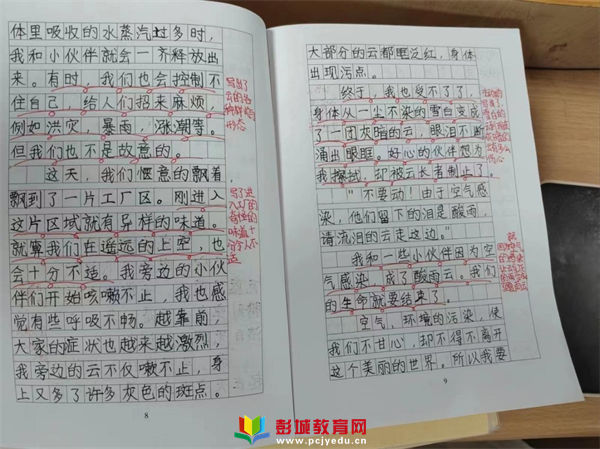 体里吸收的水蒸汽过多时，
我和小伙伴就会一齐释放出
来。有时，我们也会控制不
住自己，给人们招来麻烦，
例如洪灾，暴雨，涨潮等。
但我们也不是故意的。
这天，我们惬意的飘着，
飘到了一片工厂区。刚进入
这片区域就有异样的味道。
就算我们在遥远的上空，也
会十分不适。我旁边的小伙
伴们开始咳嗽不止，我也感
觉有些呼吸不畅。越靠前，
大家的症状也越来越激烈，
我旁边的云不仅嗽不止，身
上又多了许多灰色的斑点。
8
写出了
云的各
种样貌
形态
大部分的云都眶泛红，身体
出现污点。
终于，我也受不了了，
身体从一尘不染的雪白变成
了一团灰暗的云，眼泪不断
涌出眼眶。好心的伙伴想为
我擦拭，却被云长者制止了。
“不要动！由于空气感
染，他们留下的泪是酸雨，
请流泪的云走这边。”
我和一些小伙伴因为空
气感染，成了酸雨云。我们
的生命就要结束了。
空气，环境的污染，使
我们不甘心，却不得不离开
这个美丽的世界。所以我要
9
彭城教育网
www.pcjyedu.cn